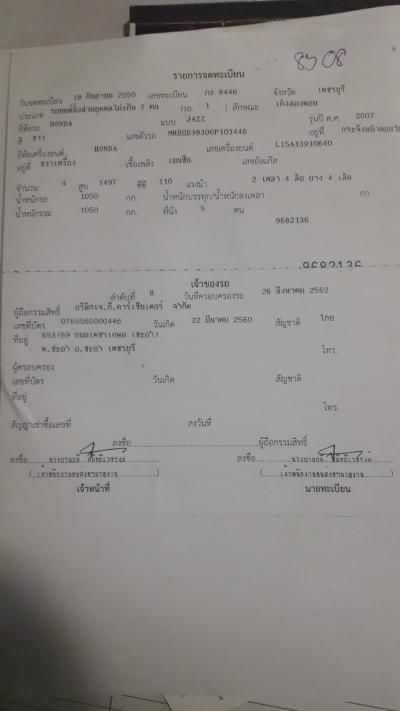 8708
6
รายการจดทะเบียน
วันจดทะเบียน 10 กันยายน 2550 เลขทะเบียน กอ 8446 จังหวัด เพชรบุรี
ประเภท รถยนต์นั่งส่วนบุคคลไม่เกิน 7 คน (รย. 1 ) ลักษณะ เก๋งสองตอน
ยี่ห้อรถ HONDA แบบ JAZZ รุ่นปี ค.ศ. 2007
สี ขาว เลขตัวรถ MRHGD38306P103446 อยู่ที่
ยี่ห้อเครื่องยนต์ HONDA เลขเครื่องยนต์ L15A13910640
อยู่ที่ ขวาเครื่อง เชื้อเพลิง เบนซิน เลขถังแก๊ส
จำนวน 4 สูบ 1497 ซีซี 110 แรงม้า 2 เพลา 4 ล้อ ยาง 4 เส้น
น้ำหนักรถ 1050 กก. น้ำหนักบรรทุก/น้ำหนักลงเพลา กก.
น้ำหนักรวม 1050 กก. ที่นั่ง 5 คน
9682136
9682136
เจ้าของรถ
ลำดับที่ 8 วันที่ครอบครองรถ 26 สิงหาคม 2562
ผู้ถือกรรมสิทธิ์ บริษัทเจ.ที.คาร์เซ็นเตอร์ จำกัด
เลขที่บัตร 0765560000446 วันเกิด 22 มีนาคม 2560 สัญชาติ ไทย
ที่อยู่ 853/69 ถนนเพชรเกษม (ชะอำ)
ต.ชะอำ อ.ชะอำ เพชรบุรี โทร.
ผู้ครอบครอง
เลขที่บัตร วันเกิด สัญชาติ
ที่อยู่
โทร.
สัญญาเช่าซื้อเลขที่ ลงวันที่
ลงชื่อ ผู้ถือกรรมสิทธิ์
ลงชื่อ ลงชื่อ
เจ้าหน้าที่ นายทะเบียน